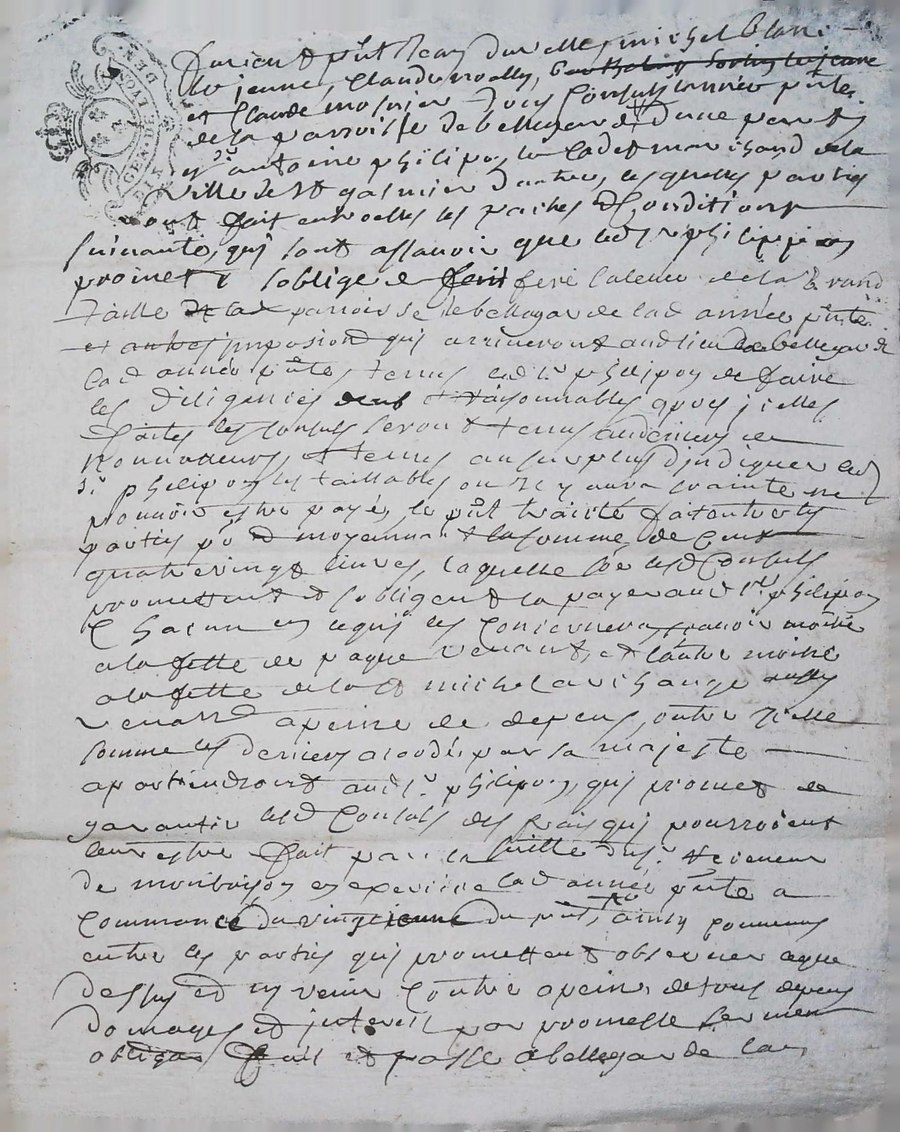 GEN. DE LYON
Furent p^nt Jean Duvelle, michel blanc
le jeune, Claude
et Claude mosnier Jous Consuls lannée p^nte
de la parroisse de bellegarde dune part et
s^r antoine philipon le Cadet marchand de la
ville de S^t galmier dautre, lesquelles parties
ont fait entrelles les paches et Conditions
suivante, qui sont assavoir que led^t s^r philippon
promet & soblige de feré laleveé de la grand
taille parroisse de bellegarde de lad^t année p^nte
et autres imposiond qui arriveront aud lieu de bellegarde
lad^t année p^nte, tenus led^t s^r philipon de faire
les diligences et raisonnables apres jcelles
faites les Consuls seront tenus audeniers de
et tenus au surplus djndiquer aud^t
s^r philipon les taillables ou il y aura crainte ne
pouvoir estre payé, le p^nt traité fat entre les
parties p^r et moyennant la somme de Cent
quatre vingt livres, laquelle lesd^t Consuls
promettent et sobligent la payer aud^t s^r philipon
Chacun en cequi les Concernera scavoir moitié
a la fette de paque venant, et lautre moitié
a la fette de la S^t michel archange
venant apeine de depens, outre jcelle
somme les deniers acordés par sa majesté
apartiendront aud^t s^r philipon, qui promet de
garantir lesd^t Consuls des frais qui pourroient
leur estre fait par la suitte du s^r Receveur
de montbrison en exercice lad^t année p^nte a
Commancé du vingt du p^nt, ainsy Convenus
entre les parties qui promettent observer ceque
dessus et ny venir Contre apeine de tous depens
domages et jnterest par promesse serment
obligan fait et passé a bellegarde